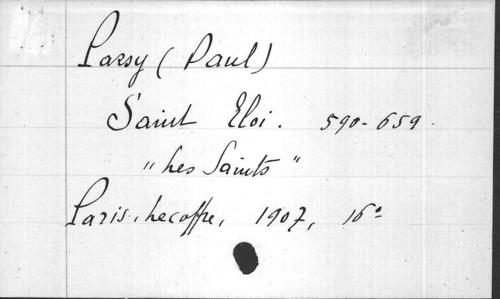 Parsy (Paul)
Saint Eloi. 590-659.
"Les Saints"
Paris, Lecoffre, 1907, 16°